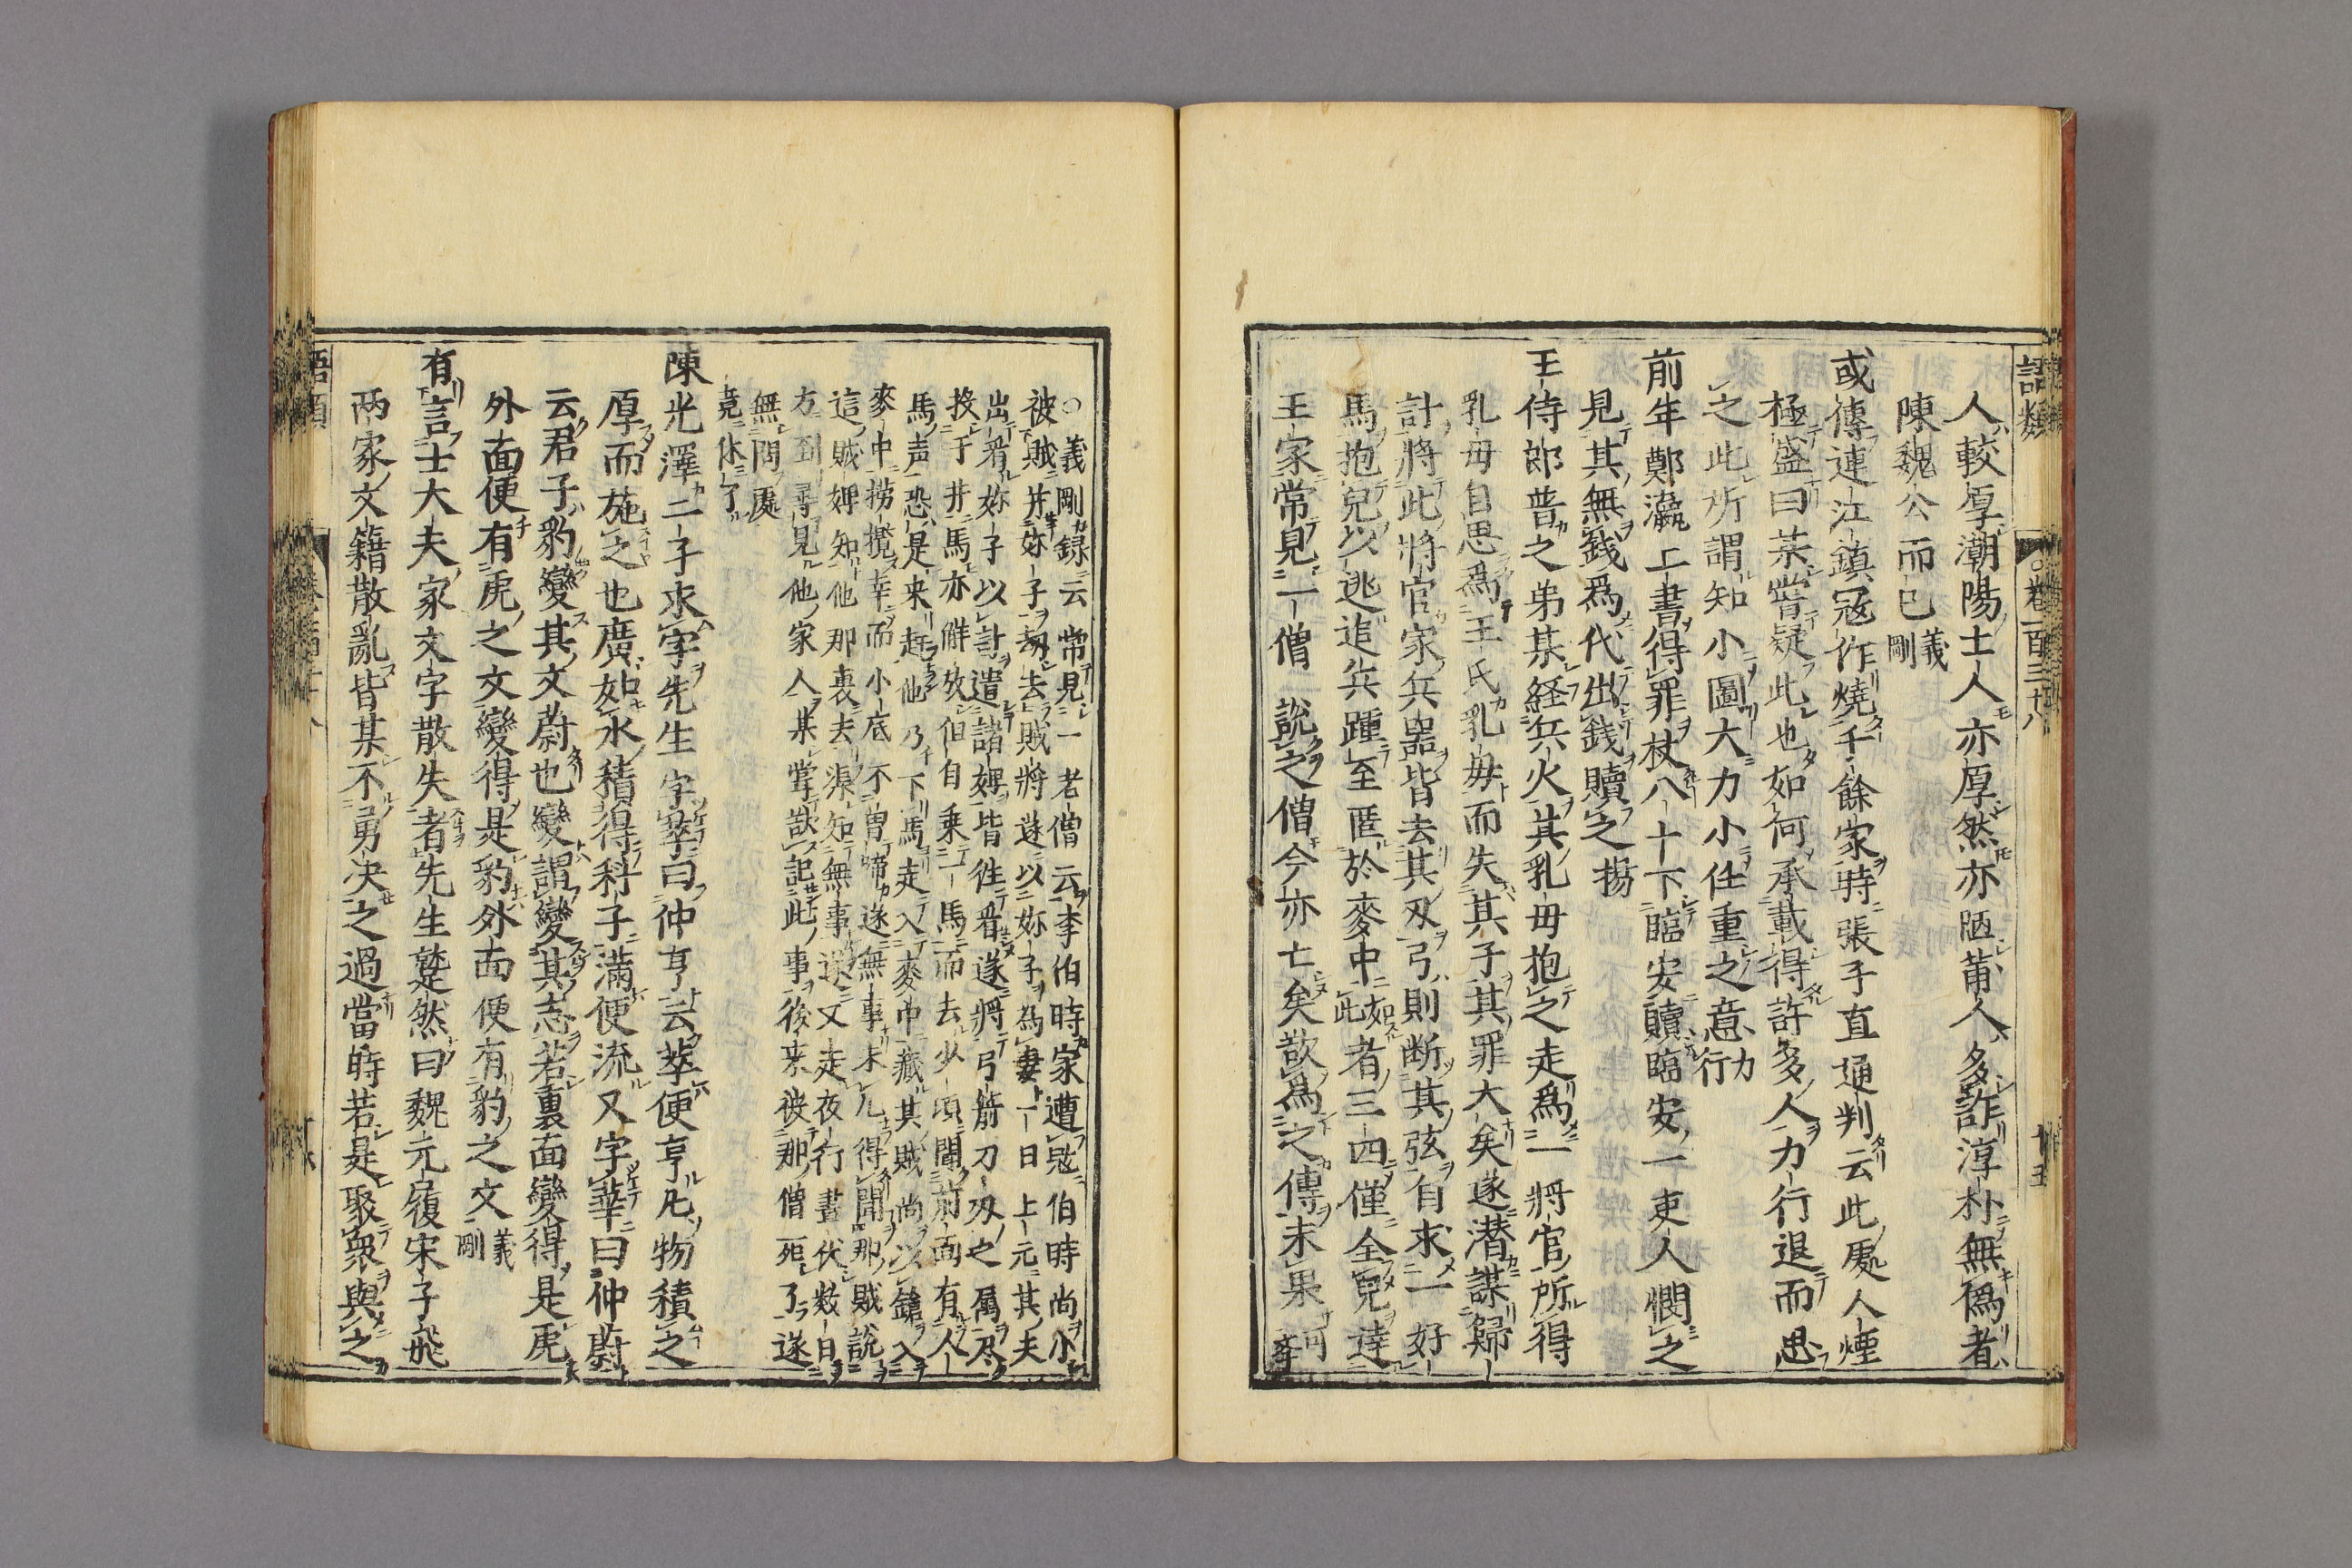 語類
卷一百三十八
十五
人較厚潮陽士人亦厚然亦陋莆人多詐淳朴無僞者
陳魏公而已義剛
或傳連江鎮寇作燒千餘家時張子直通判云此處人煙
極盛曰某嘗疑此也如何承載得許多人力行退而思
之此所謂知小圖大力小任重之意力行
前年鄭瀛上書得罪杖八十下臨安贖臨安一吏人憫之
見其無錢爲代出錢贖之揚
王侍郎普之弟某経兵火其乳母抱之走爲一將官所得
乳母自思爲王氏乳母而失其子其罪大矣遂潜謀歸
計將此將官家兵器皆去其刃弓則断其弦自求一好
馬抱兒以逃追兵踵至匿於麥中如此者三四僅全兒達
王家常見一僧說之僧今亦亡矣欲爲之傳未果可學
○義剛録云常見一老僧云李伯時家遭寇伯時尚小
被賊并妳子劫去賊將遂以妳子為妻一日上元其夫
出看妳子以計遣諸婢皆往看遂將弓箭刀刃之属尽
投于井馬亦觧放但自乗一馬而去少頃聞前面有人
馬声恐是来赶他乃下馬走入麥中藏其賊尚以鎗入
麥中撈攪幸而小底不曽啼遂無事未几得聞那賊說
這賊婢知他那裏去渠知無事遂又走夜行晝伏数日
方到尋見他家人某嘗欲記此事後来被那僧死了遂
無問處
竟休了
陳光澤二子求字先生字萃曰仲亨云萃便亨凡物積之
厚而施之也廣如水積得科子滿便流又字華曰仲蔚
云君子豹變其文蔚也變謂變其志若裏面變得是虎
外面便有虎之文變得是豹外面便有豹之文義剛
有言士大夫家文字散失者先生蹙然曰魏元履宋子飛
两家文籍散亂皆某不勇决之過當時若是聚衆與之
語類